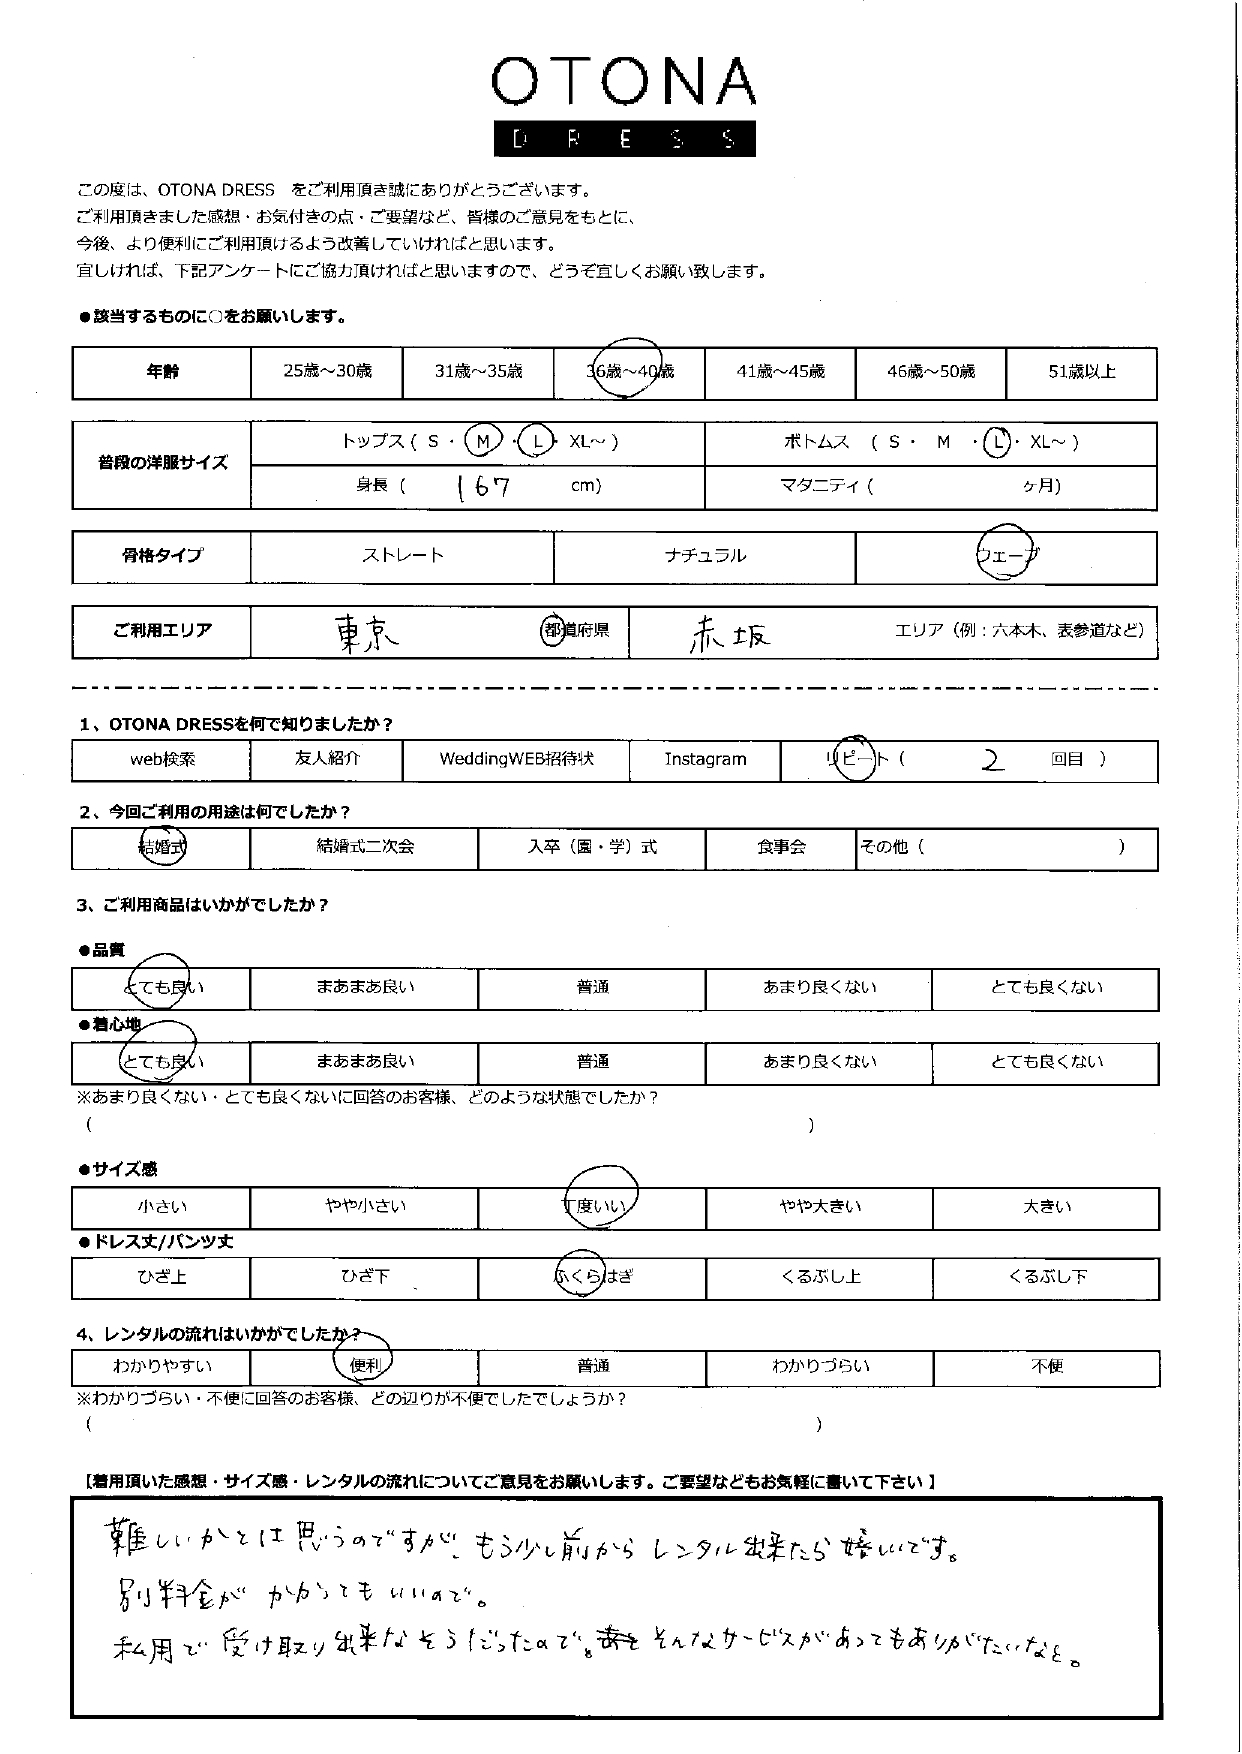 OTONA
DRESS
この度は、OTONA DRESS をご利用頂き誠にありがとうございます。
ご利用頂きました感想・お気付きの点・ご要望など、皆様のご意見をもとに、
今後、より便利にご利用頂けるよう改善していければと思います。
宜しければ、下記アンケートにご協力頂ければと思いますので、どうぞ宜しくお願い致します。
●該当するものに○をお願いします。
年齢 25歳～30歳 31歳～35歳 36歳～40歳 41歳～45歳 46歳～50歳 51歳以上
普段の洋服サイズ トップス ( S ・ M ・ L ・ XL～ ) ボトムス ( S ・ M ・ L ・ XL～ )
身長 ( 167 cm) マタニティ ( ヶ月)
骨格タイプ ストレート ナチュラル ウェーブ
ご利用エリア 東京 都道府県 赤坂 エリア（例：六本木、表参道など）
1、OTONA DRESSを何で知りましたか？
web検索 友人紹介 WeddingWEB招待状 Instagram リピート ( 2 回目 )
2、今回ご利用の用途は何でしたか？
結婚式 結婚式二次会 入卒（園・学）式 食事会 その他 ( )
3、ご利用商品はいかがでしたか？
●品質
とても良い まあまあ良い 普通 あまり良くない とても良くない
●着心地
とても良い まあまあ良い 普通 あまり良くない とても良くない
※あまり良くない・とても良くないに回答のお客様、どのような状態でしたか？
( )
●サイズ感
小さい やや小さい 丁度いい やや大きい 大きい
●ドレス丈/パンツ丈
ひざ上 ひざ下 ふくらはぎ くるぶし上 くるぶし下
4、レンタルの流れはいかがでしたか？
わかりやすい 便利 普通 わかりづらい 不便
※わかりづらい・不便に回答のお客様、どの辺りが不便でしたでしょうか？
( )
【着用頂いた感想・サイズ感・レンタルの流れについてご意見をお願いします。ご要望などもお気軽に書いて下さい 】
難しいかとは思うのですが、もう少し前からレンタル出来たら嬉しいです。
別料金がかかってもいいので。
私用で受け取り出来なそうだったので。そんなサービスがあってもありがたいなと。